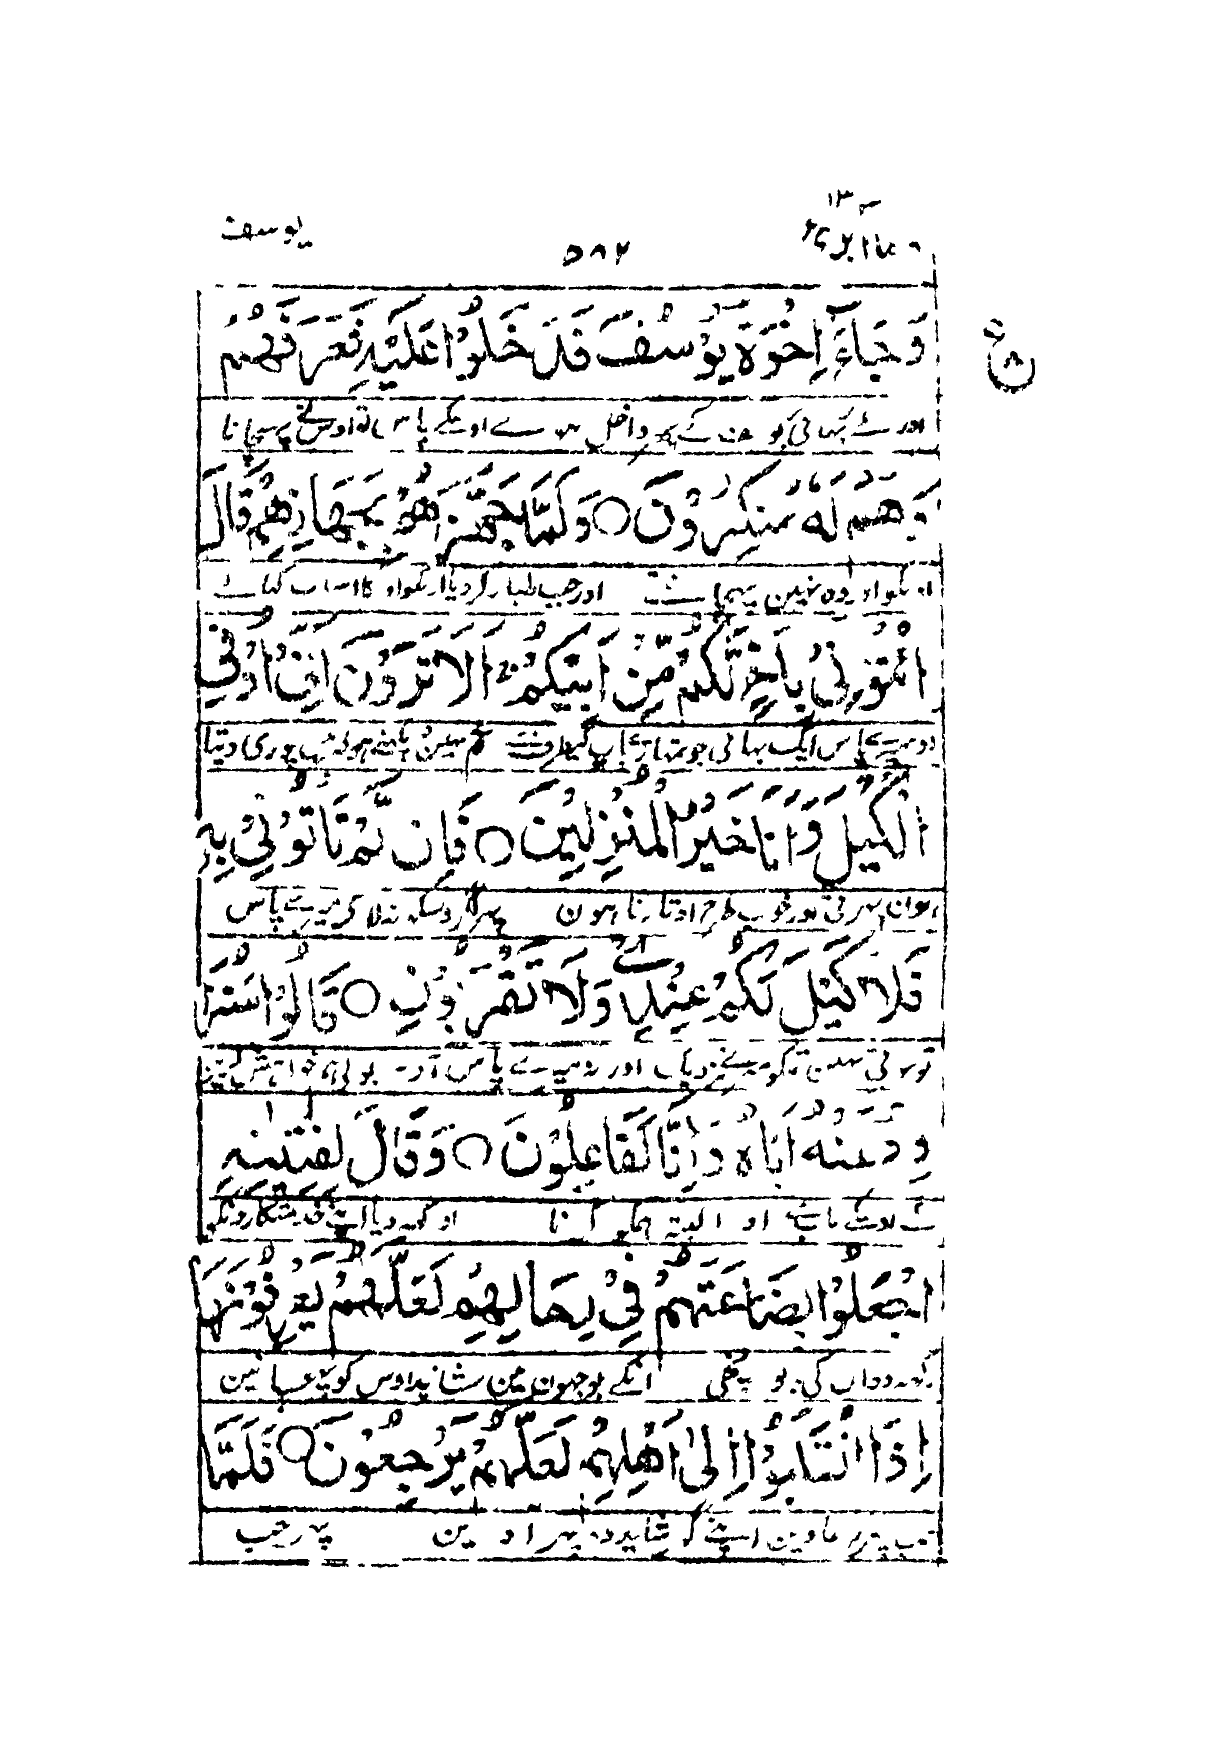 ١٣
یوسف ٥٨٢ وما ابرئ
وَجَاءَ اِخْوَةُ يُوْسُفَ فَدَخَلُوْا عَلَيْهِ فَعَرَفَهُمْ
اور آئے بہائی یوسف کے پہر داخل ہوے اوسکے پاس تو اوسنے پہچانا
وَهُمْ لَهٗ مُنْكِرُوْنَ ○ وَلَمَّا جَهَّزَهُمْ بِجَهَازِهِمْ قَالَ
اونکو اور وہ نہین پہچانتے اور جب طیار کر دیا اونکو اونکا اسباب کہا لے
ائْتُوْنِيْ بِاَخٍ لَّكُمْ مِّنْ اَبِيْكُمْ اَلَا تَرَوْنَ اَنِّيْ اُوْفِي
میرے پاس ایک بہائی جو تمہارے باپ کیطرف تم نہین دیکھتے ہو کہ مین پوری دیتا
الْكَيْلَ وَاَنَا خَيْرُ الْمُنْزِلِيْنَ ○ فَاِنْ لَّمْ تَاْتُوْنِيْ بِهٖ
ہون بہرتی اور خوب طرح اوتارتا ہون پہر اگر اوسکو نہ لائے میرے پاس
فَلَا كَيْلَ لَكُمْ عِنْدِيْ وَلَا تَقْرَبُوْنِ ○ قَالُوْا سَنُرَا
تو بہرتی نہین تمکو میرے نزدیک اور نہ میرے پاس آؤ بولے ہم خواہش کرینگے
وِدُ عَنْهُ اَبَاهُ وَاِنَّا لَفَاعِلُوْنَ ○ وَقَالَ لِفِتْيٰنِهِ
اوسکے باپ سے اور البتہ ہمکو کرنا اور کہہ دیا اپنے خدمتگارونکو
اجْعَلُوْا بِضَاعَتَهُمْ فِيْ رِحَالِهِمْ لَعَلَّهُمْ يَعْرِفُوْنَهَا
رکھہ دو اون کی پونجی اونکے بوجہون مین شاید اوس کو پہچانین
اِذَا انْقَلَبُوْا اِلٰى اَهْلِهِمْ لَعَلَّهُمْ يَرْجِعُوْنَ ○ فَلَمَّا
جب پہر جاوین اپنے گہر شاید وہ پہر آوین پہر جب